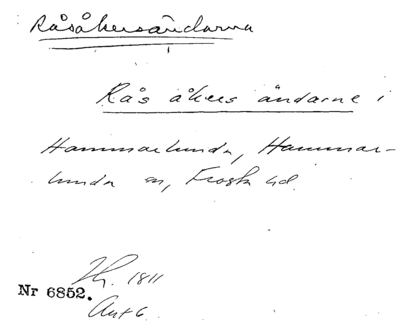 Råsåkersändarna
Rås åkers ändarne i
Hammarlunda, Hammar-
lunda sn, Frosta hd.
Th. 1811
Nr 6852.
Akt 6